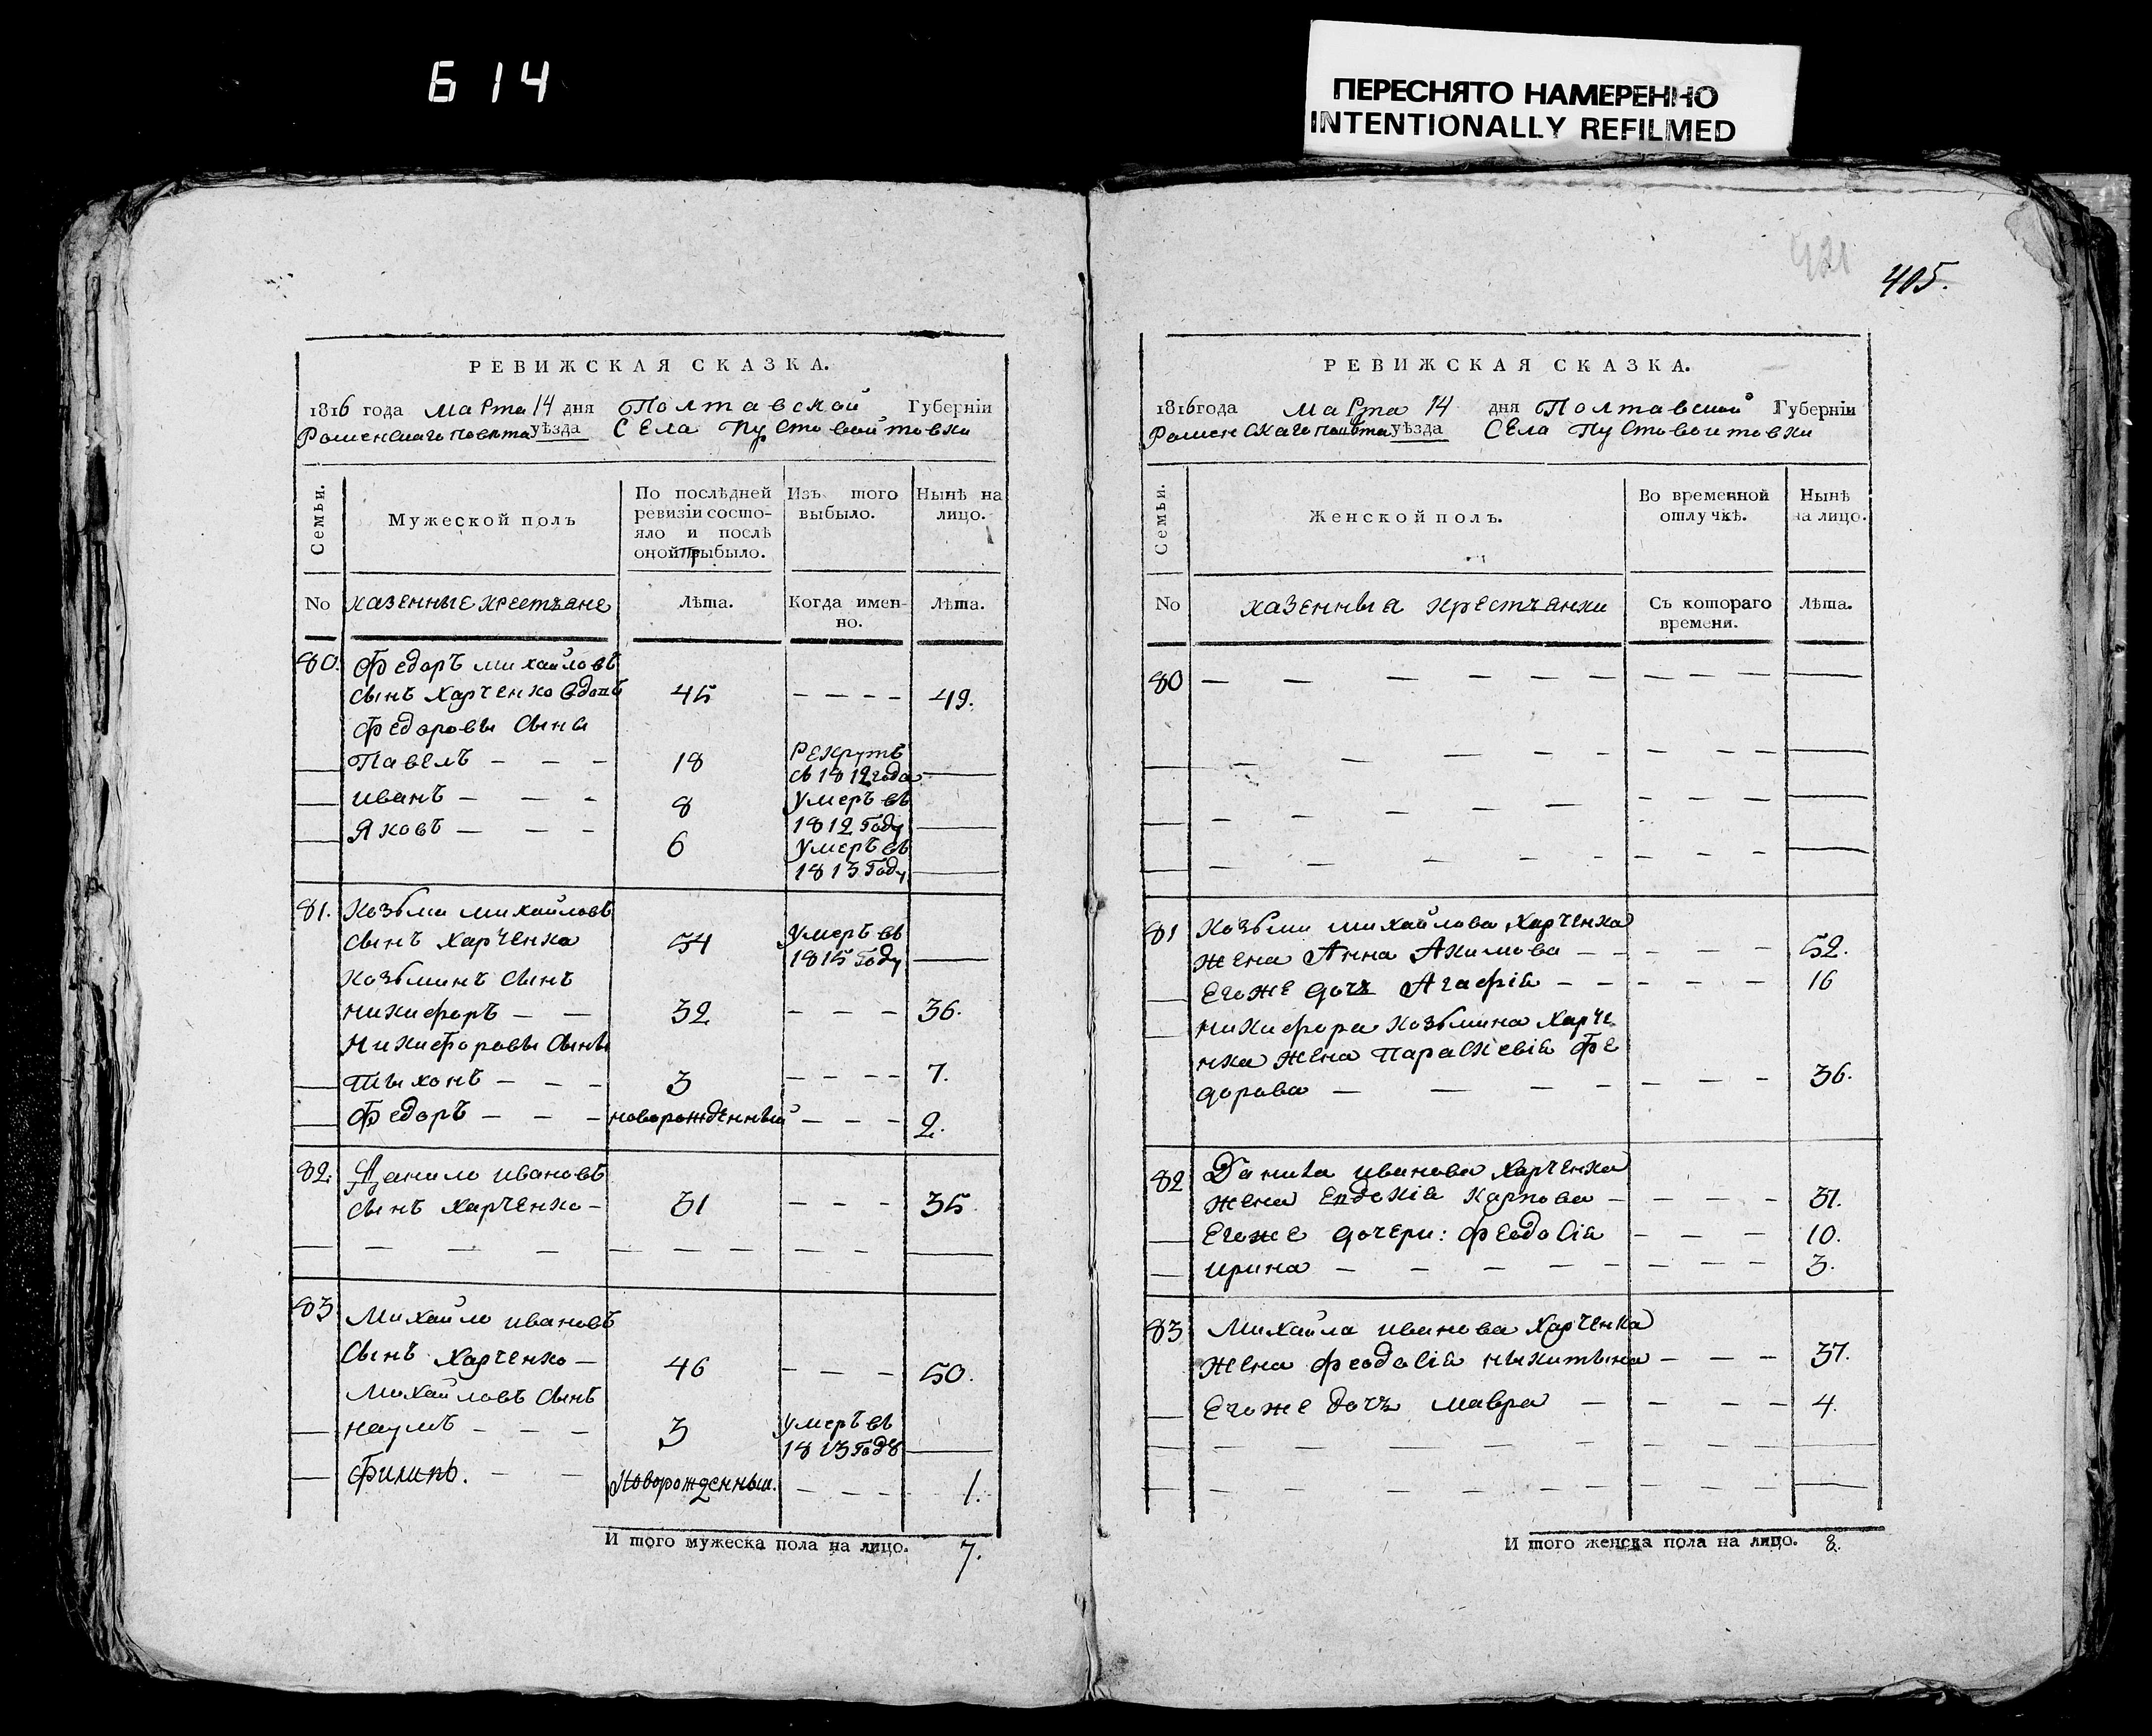 614
ПЕРЕСНЯТО НАМЕРЕННО
INTENTIONALLY REFILMED
421
405.
РЕВИЖСКАЯ СКАЗКА.
1816 года Марта 14 дня Полтавской Губерніи
Роменскаго повѣта уѣзда Села Пустовойтовки
Семьи.
Мужеской полъ
По послѣдней ревизіи состояло и послѣ оной прибыло.
Изъ того выбыло.
Нынѣ на лицо.
No казенные крестъяне Лѣта. Когда именно. Лѣта.
80. Федоръ михайловъ
сынъ Харченко вдовъ 45 – – – – 49.
Федоровы сыны
Павелъ – – – 18 Рекрутъ
съ 1812 года
иванъ – – – 8 умеръ въ
1812 Году
Яковъ – – – 6 умеръ въ
1813 Году
81. Козьми михайловъ
сынъ Харченка 54 умеръ въ
1815 Году
Козьминъ сынъ
никифоръ – – 32 – – – 36.
Никифоровы сыны
Тыхонъ – – – 3 – – – – 7.
Федоръ – – – новорожденный – – – 2.
82. Данило ивановъ
сынъ Харченко – 31 – – – 35.
83 Михайло ивановъ
Сынъ Харченко – 46 – – – 50.
Михайловъ сынъ
наумъ – – – 3 умеръ въ
1813 Годѣ
Филипъ. – – Новорожденный. – – – – 1.
И того мужеска пола на лицо. 7.
РЕВИЖСКАЯ СКАЗКА.
1816 года Марта 14 дня Полтавской Губерніи
Роменскаго повѣта уѣзда Села Пустовоитовки
Семьи.
Женской полъ.
Во временной отлучкѣ.
Нынѣ на лицо.
No казенныя крестъянки Съ котораго времени. Лѣта.
80 – – – – – – – – –
81 Козьми михайлова Харченка
жена Анна Акимова – – – – – 52.
Егоже дочь Агафія – – – – – 16
никифора козьмина Харче
нка жена Параскевія Фе
дорова – – – – – – – 36.
82 Данила иванова Харченка
жена Евдокія Карпова – – – – 31.
Егоже дочери: феодосія – – – 10.
ирина – – – – – – – – 3.
83 Михайла иванова Харченка
жена феодосія ныкитына – – – 37.
Егоже дочь мавра – – – – 4.
И того женска пола на лицо. 8.